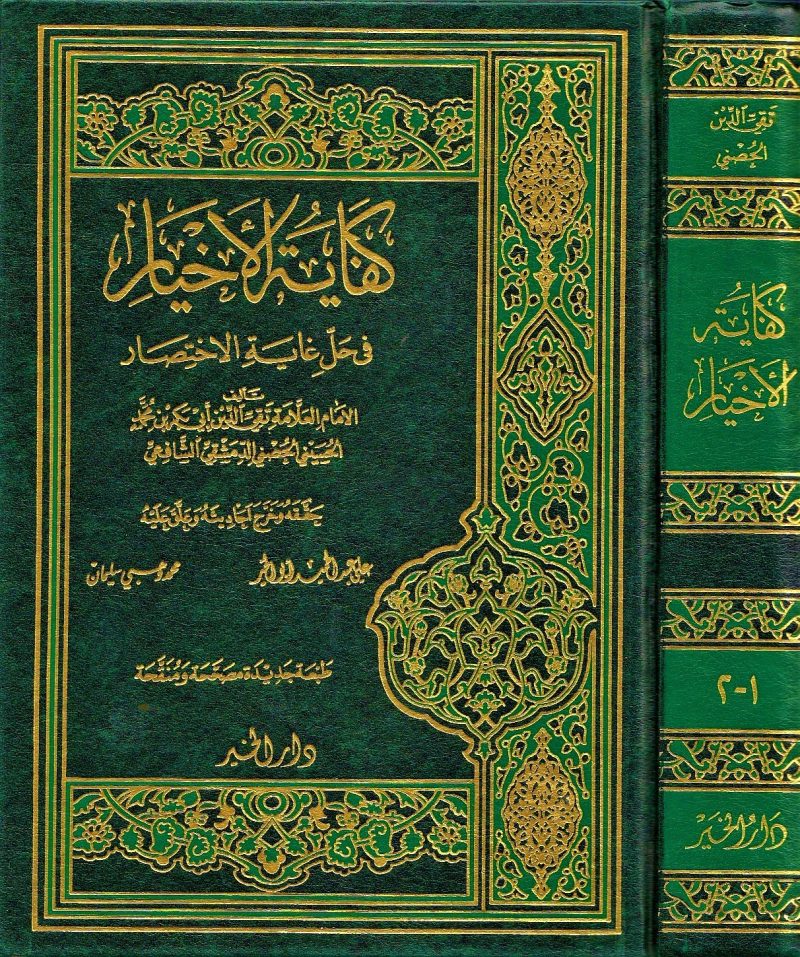 كفاية الأخيار
في حل غاية الاختصار
تأليف
الإمام العلامة تقي الدين أبي بكر بن محمد
الحسيني الحصني الدمشقي الشافعي
حققه وخرج أحاديثه وعلق عليه
علي عبد الحميد أبو الخير محمد وهبي سليمان
طبعة جديدة مصححة ومنقحة
دار الخير
تقي الدين
الحصني
كفاية
الأخيار
١-٢
دار الخير